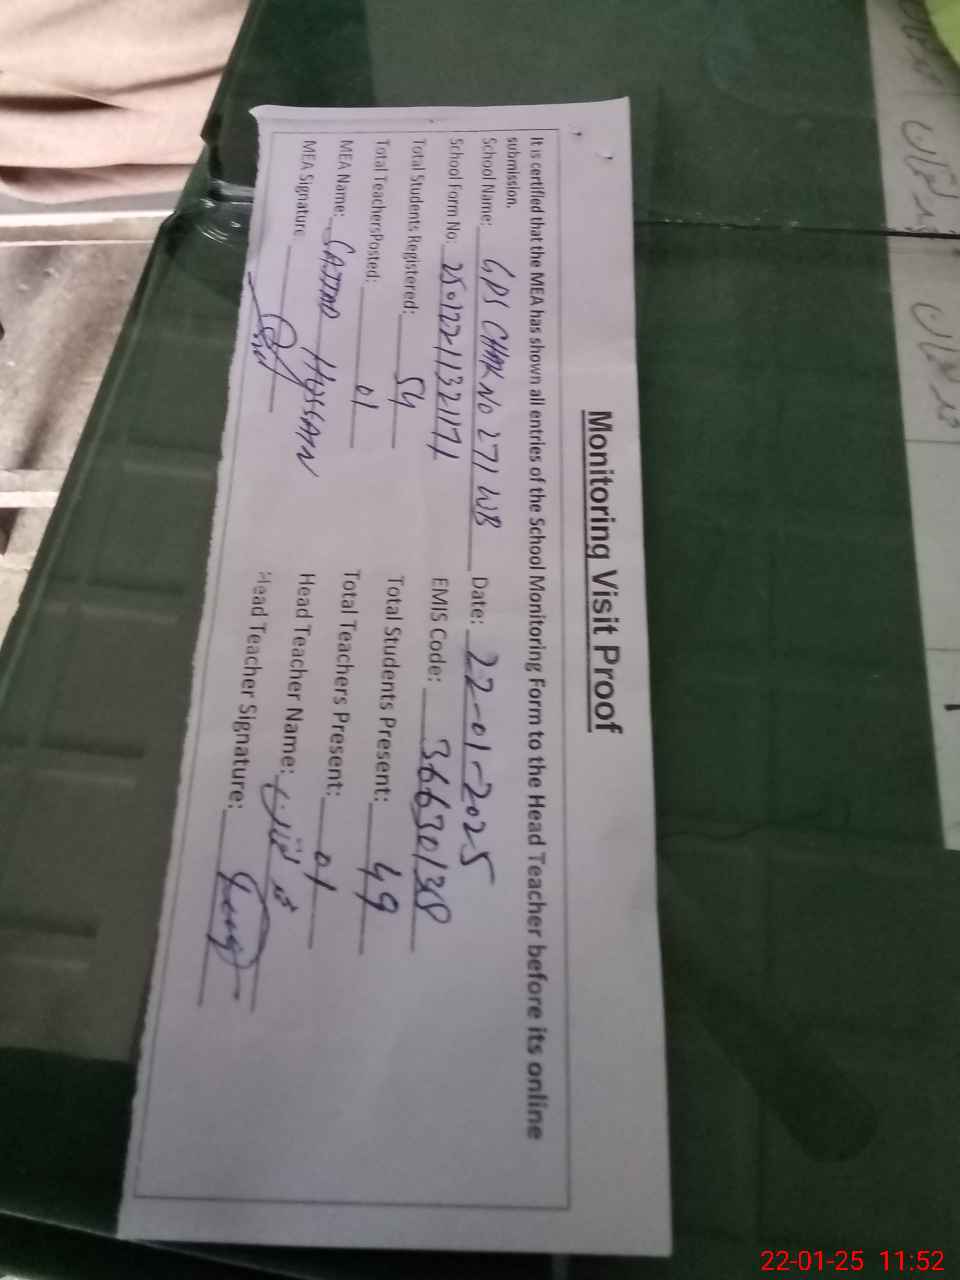 Monitoring Visit Proof
It is certified that the MEA has shown all entries of the School Monitoring Form to the Head Teacher before its online
submission.
School Name: GPS CHAK NO 271 WB Date: 22-01-2025
School Form No: EMIS Code: 36630138
Total Students Registered: 54 Total Students Present: 49
Total TeachersPosted: 01 Total Teachers Present: 01
MEA Name: SAJJAD HUSSAIN Head Teacher Name:
MEA Signature Head Teacher Signature:
22-01-25 11:52